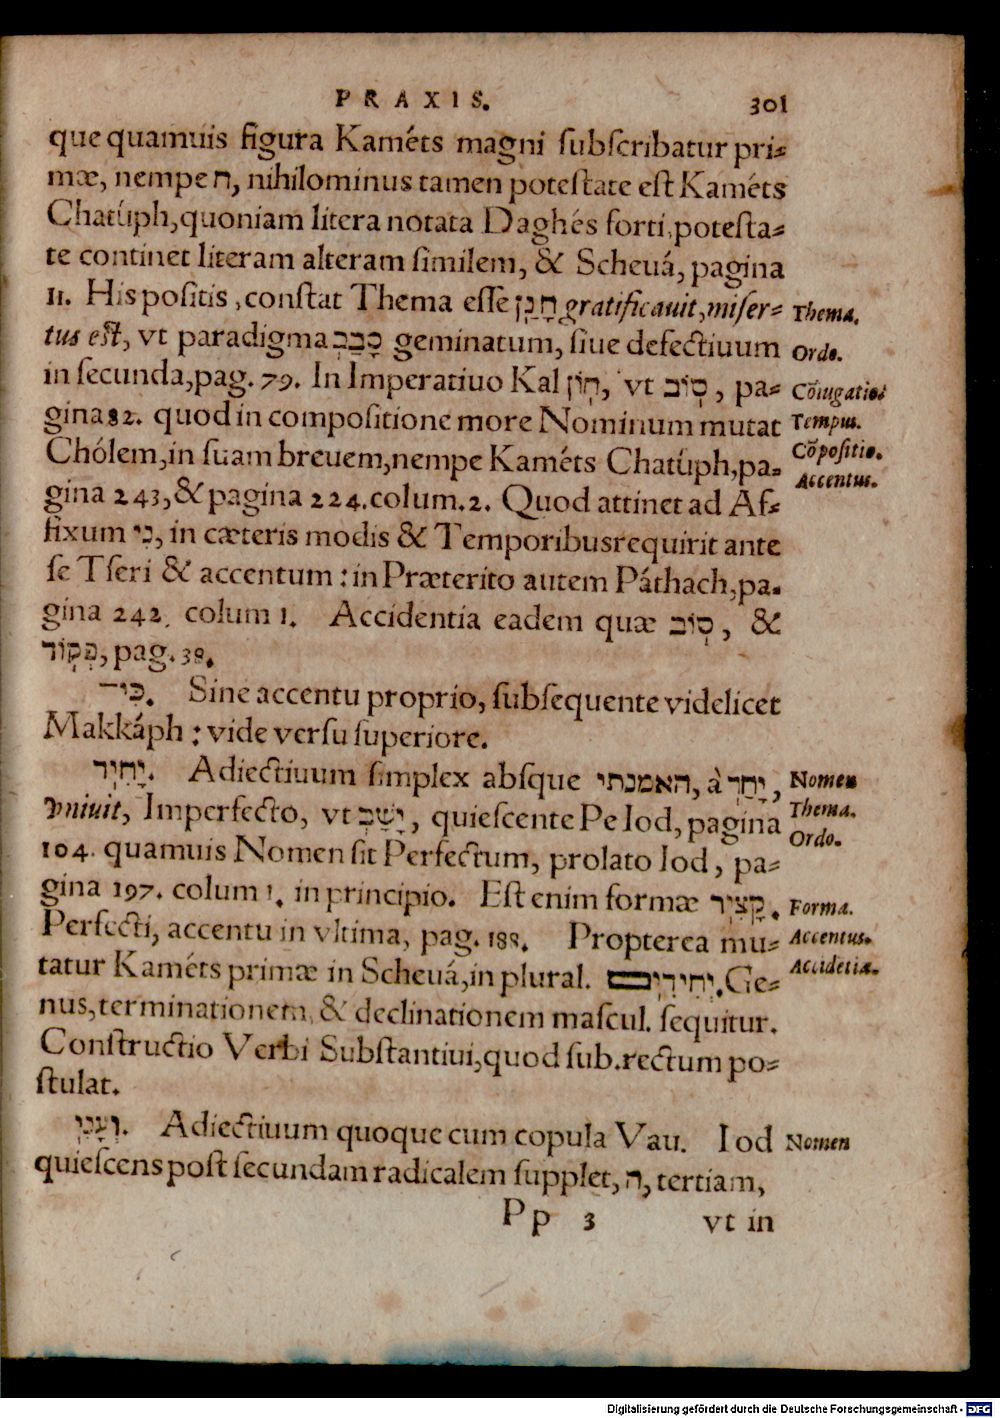 PRAXIS. 301
que quamuis figura Kaméts magni ſubſcribatur pri-
mæ, nempe ח, nihilominus tamen poteſtate eſt Kaméts
Chatúph, quoniam litera notata Daghés forti, poteſta-
te continet literam alteram ſimilem, & Scheuá, pagina
11. His poſitis, conſtat Thema eſſe חָנַן gratificauit, miſer- Thema.
tus eſt, vt paradigma סָבַב geminatum, ſiue defectiuum Ordo.
in ſecunda, pag. 79. In Imperatiuo Kal חֹון, vt סוֹב, pa- Cōiugatio
gina 82. quod in compoſitione more Nominum mutat Tempus.
Chólem, in ſuam breuem, nempe Kaméts Chatúph, pa- Cōpoſitio.
gina 243, & pagina 224. colum. 2. Quod attinet ad Af- Accentus.
fixum נִי, in cæteris modis & Temporibus requirit ante
ſe Tſeri & accentum : in Præterito autem Páthach, pa-
gina 242. colum 1. Accidentia eadem quæ סוֹב, &
פְּקוֹד, pag. 38.
כִּי־. Sine accentu proprio, ſubſequente videlicet
Makkáph : vide verſu ſuperiore.
יָחִיד. Adiectiuum ſimplex abſque האמנתי, à יָחַד, Nomen
vniuit, Imperfecto, vt יָשַׁב, quieſcente Pe Iod, pagina Thema.
104. quamuis Nomen ſit Perfectum, prolato Iod, pa- Ordo.
gina 197. colum 1. in principio. Eſt enim formæ קָצִיר. Forma.
Perfecti, accentu in vltima, pag. 188. Propterea mu- Accentus.
tatur Kaméts primæ in Scheuá, in plural. יְחִידִים. Ge- Accidētia.
nus, terminationem, & declinationem maſcul. ſequitur.
Conſtructio Verbi Subſtantiui, quod ſub. rectum po-
ſtulat.
וְעָנִי. Adiectiuum quoque cum copula Vau. Iod Nomen
quieſcens poſt ſecundam radicalem ſupplet, ה, tertiam,
Pp 3 vt in
Digitalisierung gefördert durch die Deutsche Forschungsgemeinschaft - DFG